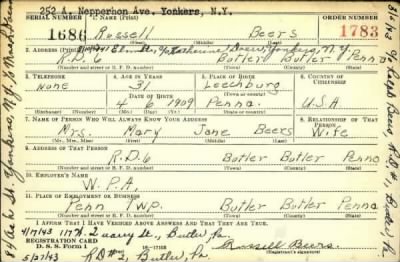 252 A. Nepperhan Ave. Yonkers, N.Y.
SERIAL NUMBER 1. NAME (Print) ORDER NUMBER
1686 Russell Beers 1783
(First) (Middle) (Last)
2. ADDRESS (Print)
R.D. 6 Butler Butler Penna
(Number and street or R. F. D. number) (Town) (County) (State)
3. TELEPHONE 4. AGE IN YEARS 5. PLACE OF BIRTH 6. COUNTRY OF CITIZENSHIP
None 31 Leechburg
DATE OF BIRTH
4 6 1909 Penna. U.S.A
(Exchange) (Number) (Mo.) (Day) (Yr.) (State or country)
7. NAME OF PERSON WHO WILL ALWAYS KNOW YOUR ADDRESS 8. RELATIONSHIP OF THAT PERSON
Mrs. Mary Jane Beers Wife
(Mr., Mrs., Miss) (First) (Middle) (Last)
9. ADDRESS OF THAT PERSON
R.D. 6 Butler Butler Penna
(Number and street or R. F. D. number) (Town) (County) (State)
10. EMPLOYER'S NAME
W.P.A.
11. PLACE OF EMPLOYMENT OR BUSINESS
Penn Twp. Butler Butler Penna
(Number and street or R. F. D. number) (Town) (County) (State)
I AFFIRM THAT I HAVE VERIFIED ABOVE ANSWERS AND THAT THEY ARE TRUE.
REGISTRATION CARD
D. S. S. Form 1 16—17105
8/17/43 St., Butler, Pa.
5/27/43 RD#2, Butler, Pa.
Russell Beers.
(Registrant's signature)